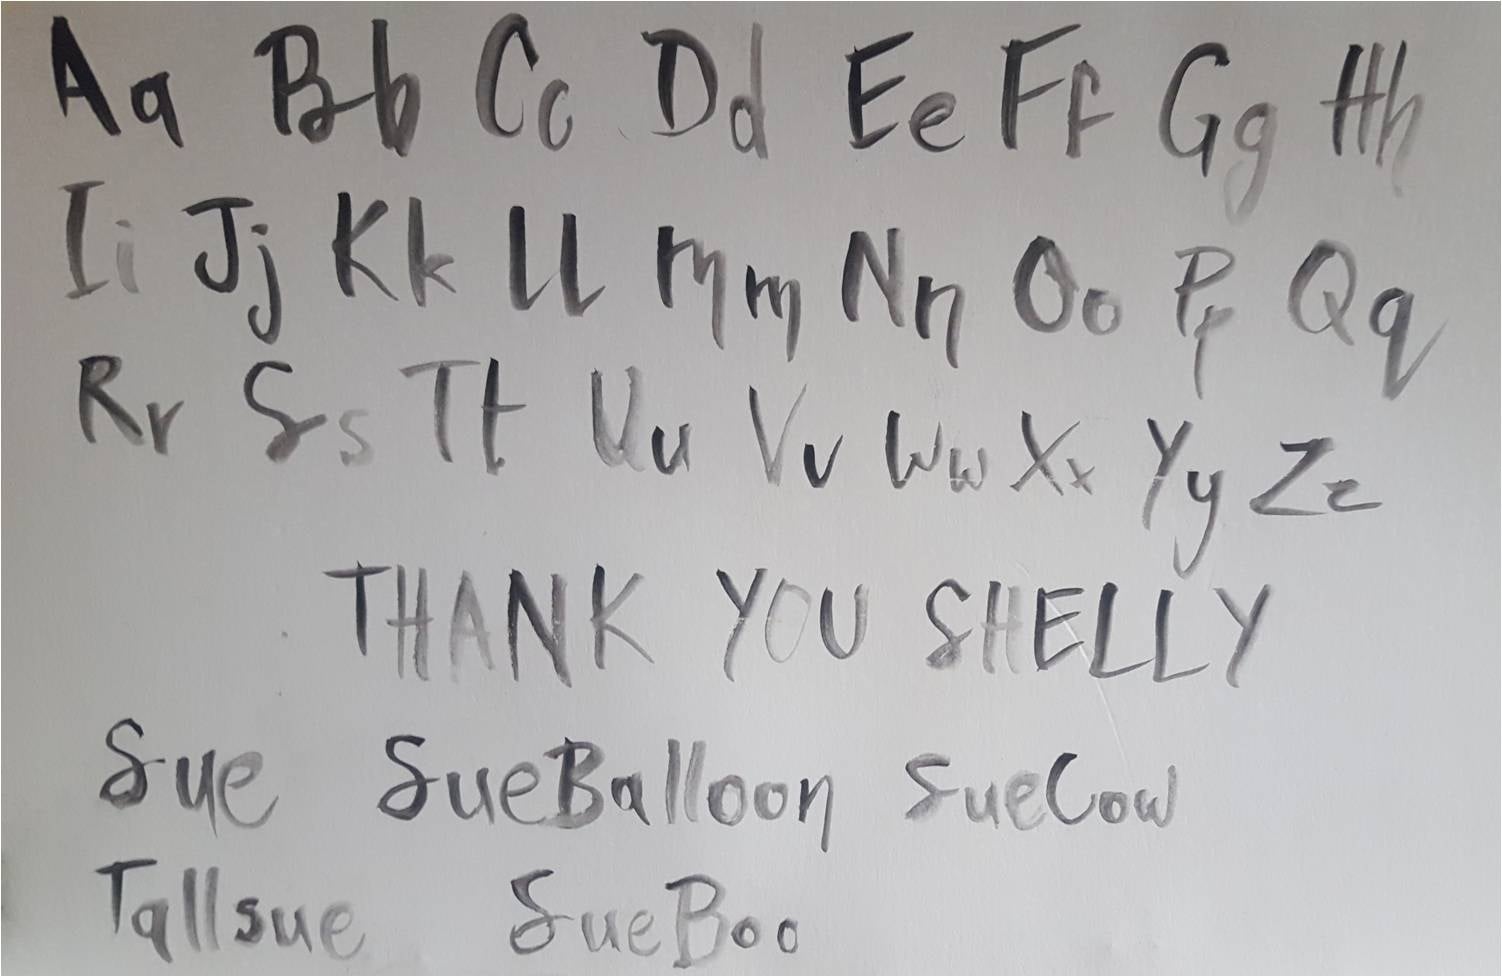 Aa Bb Cc Dd Ee Ff Gg Hh
Ii Jj Kk Ll Mm Nn Oo Pp Qq
Rr Ss Tt Uu Vv Ww Xx Yy Zz
THANK YOU SHELLY
Sue SueBalloon SueCow
Tallsue SueBoo